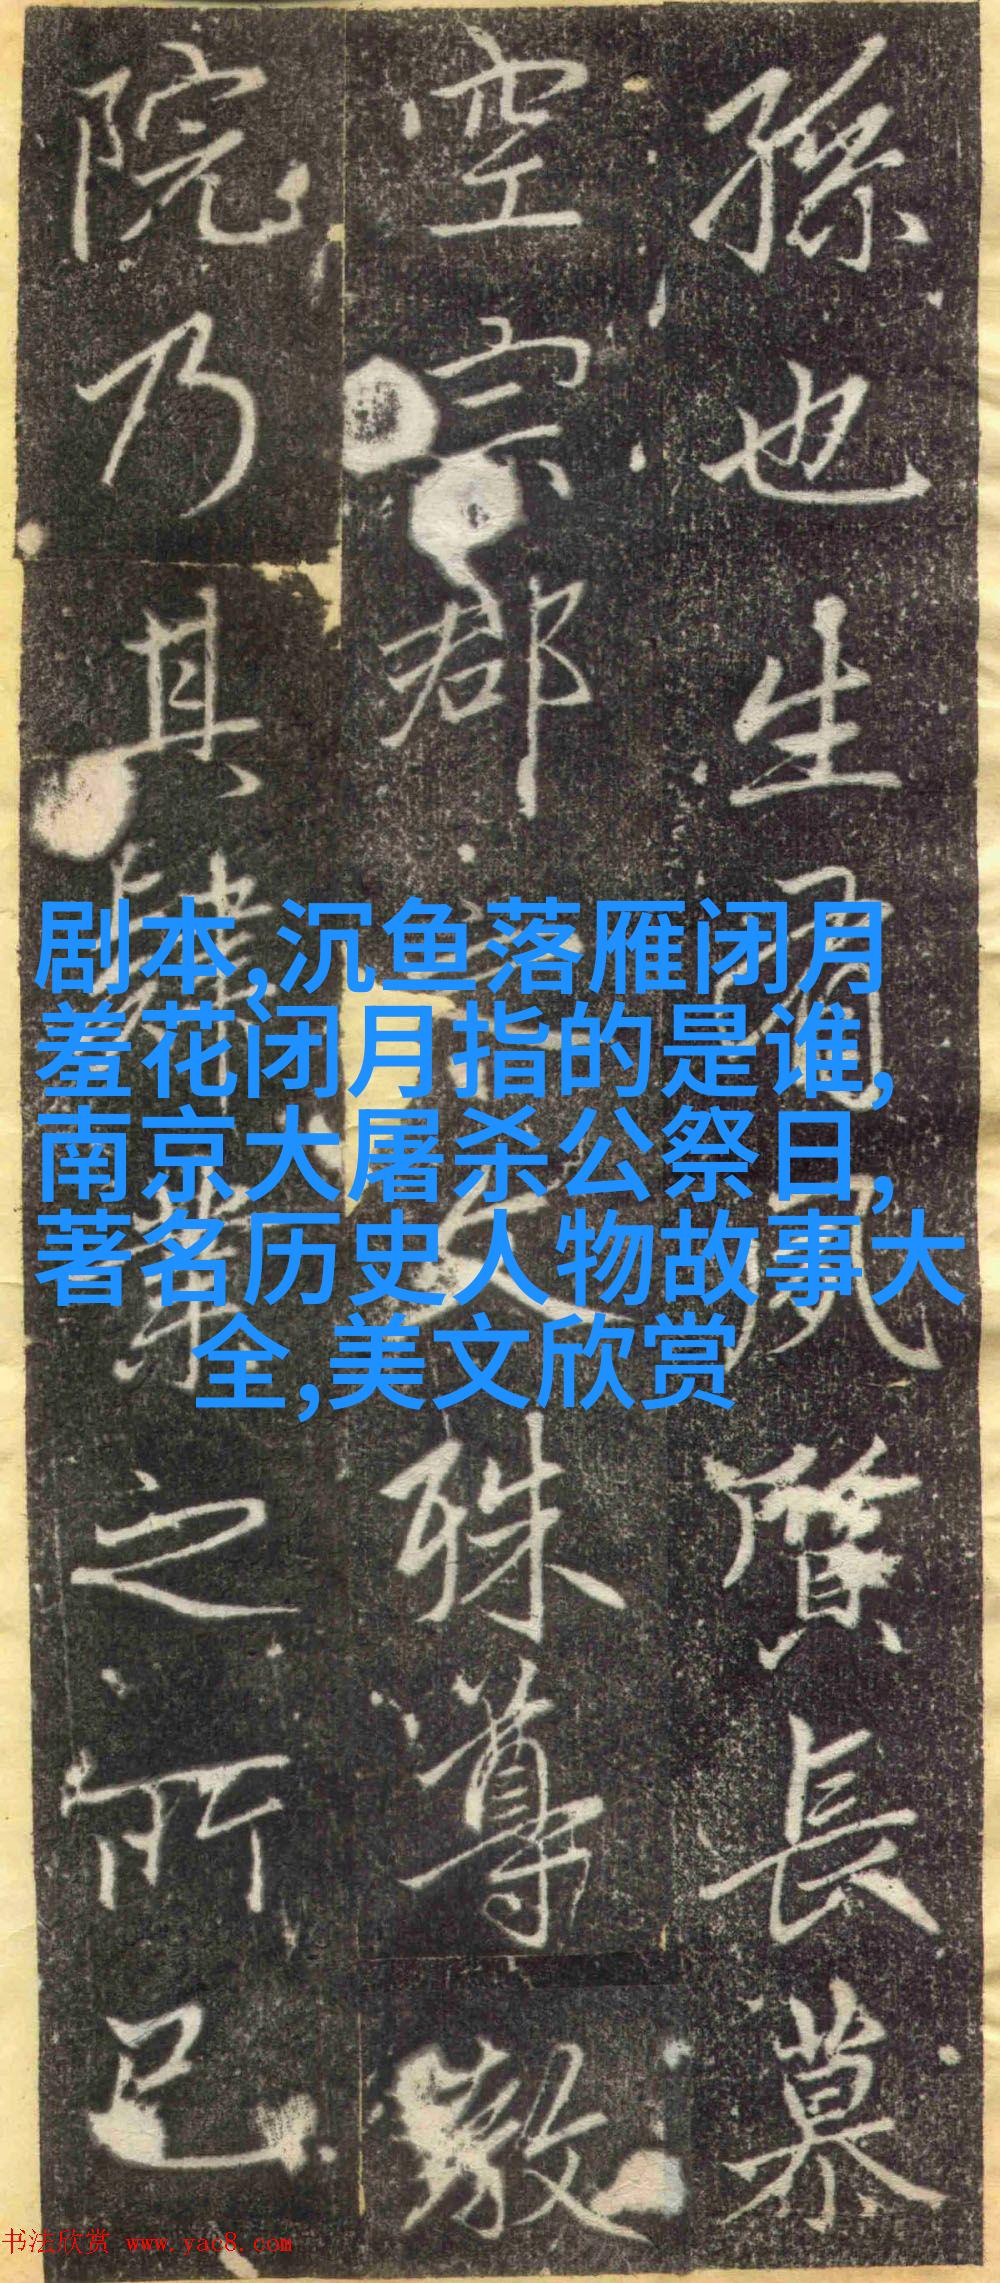 孫也生有風質長慕
空宗郡文殊尊教
院乃其肄業之所已
剧本,沉鱼落雁闭月
羞花闭月指的是谁,
南京大屠杀公祭日,
著名历史人物故事大
全,美文欣赏
书法欣赏 www.yac8.com